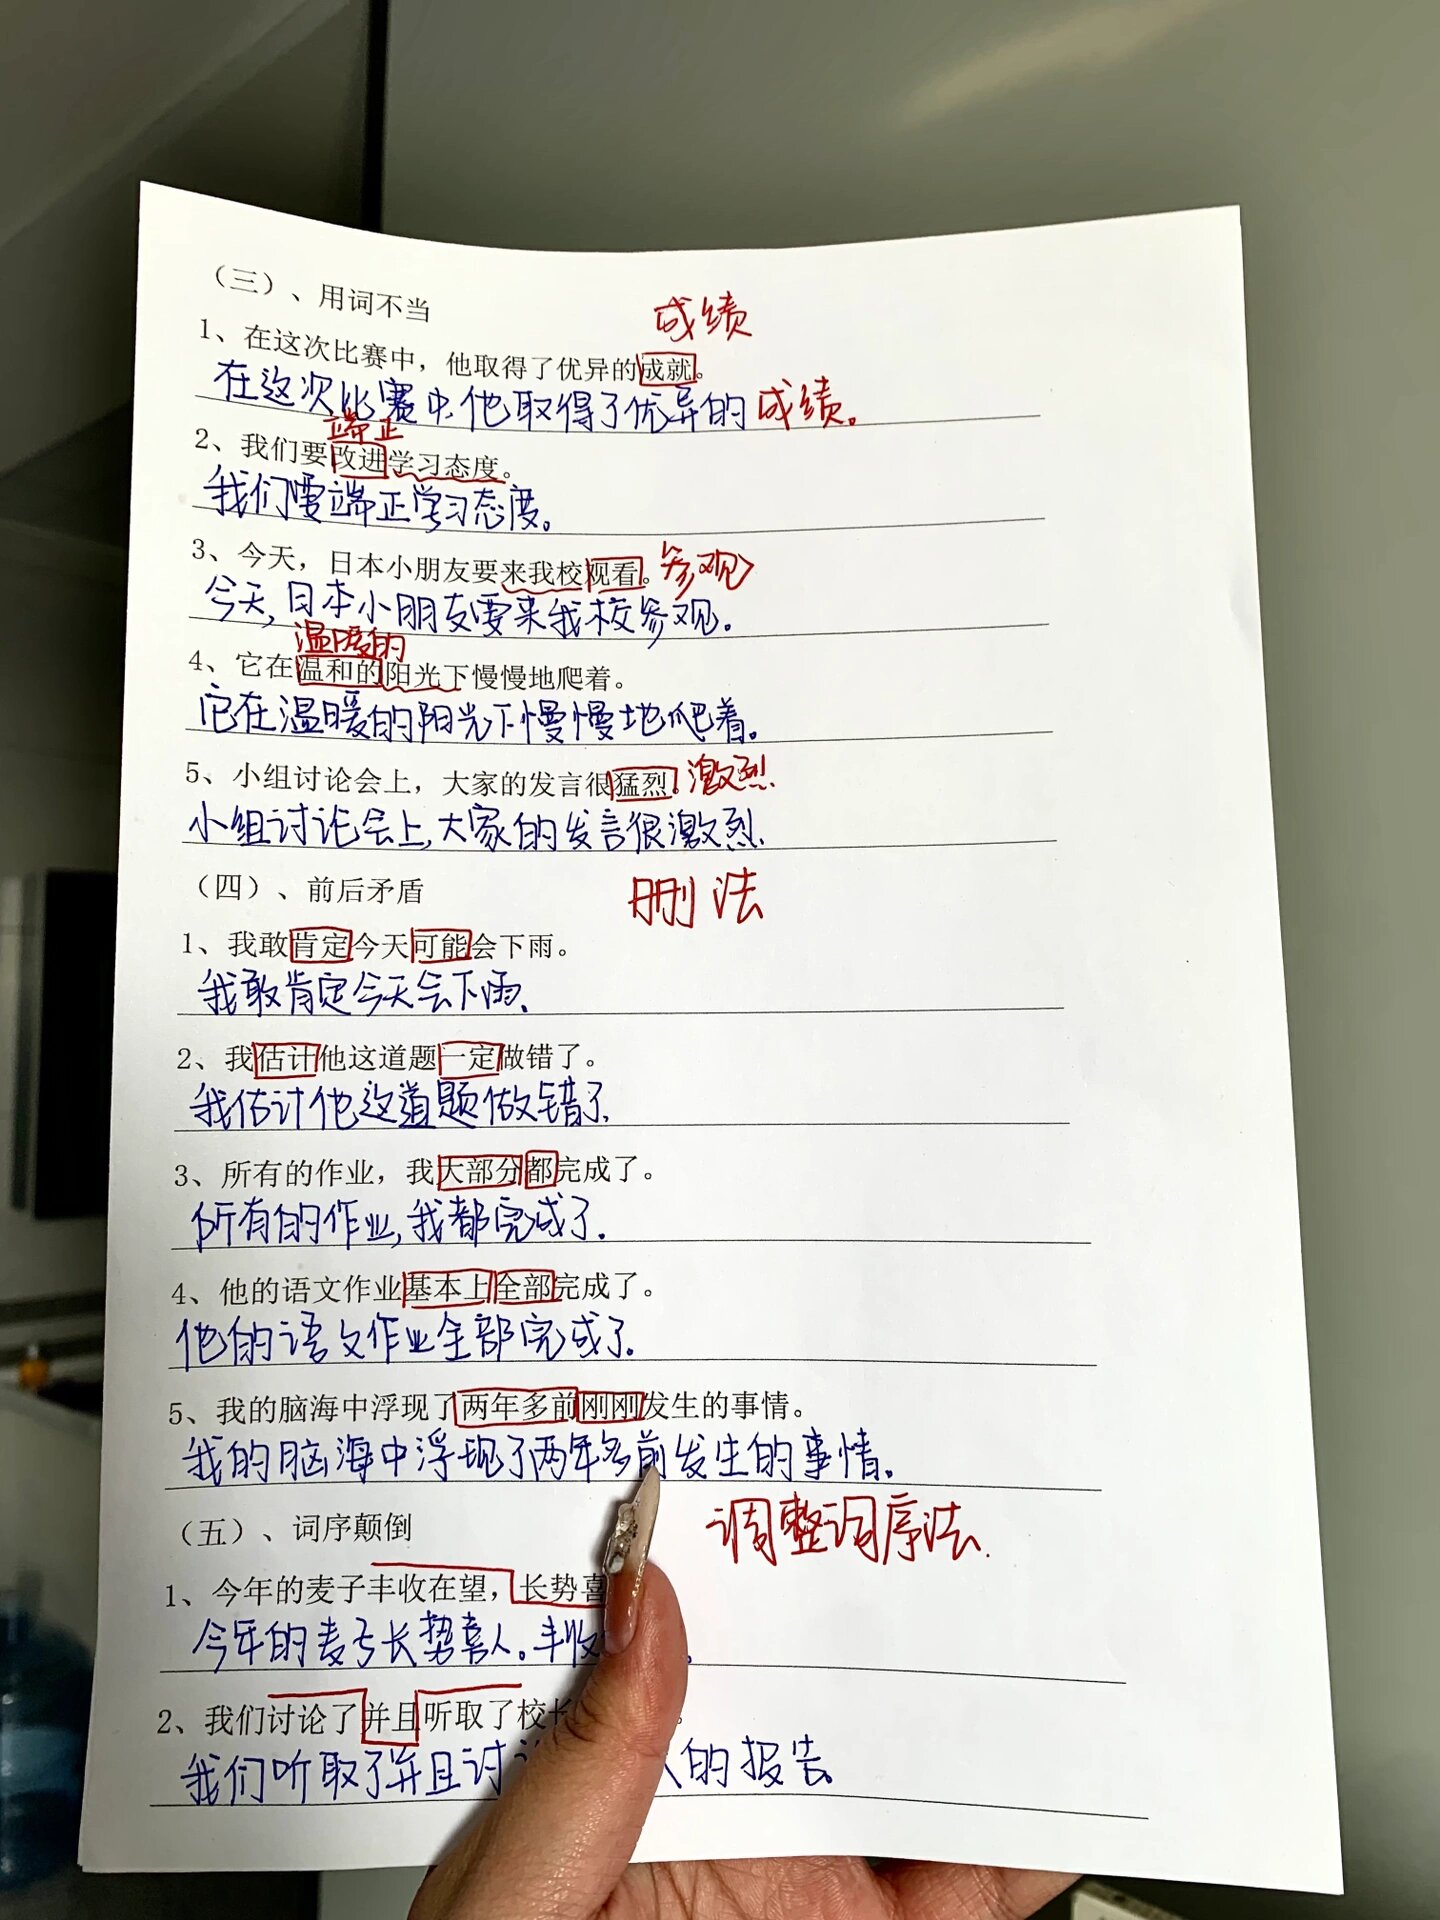 （三）、用词不当
成绩
1、在这次比赛中，他取得了优异的成就。
在这次比赛中,他取得了优异的成绩。
端正
2、我们要改进学习态度。
我们要端正学习态度。
3、今天，日本小朋友要来我校观看。参观
今天,日本小朋友要来我校参观.
温暖的
4、它在温和的阳光下慢慢地爬着。
它在温暖的阳光下慢慢地爬着。
5、小组讨论会上，大家的发言很猛烈。激烈
小组讨论会上,大家的发言很激烈.
（四）、前后矛盾
删法
1、我敢肯定今天可能会下雨。
我敢肯定今天会下雨.
2、我估计他这道题一定做错了。
我估计他这道题做错了.
3、所有的作业，我大部分都完成了。
所有的作业,我都完成了.
4、他的语文作业基本上全部完成了。
他的语文作业全部完成了.
5、我的脑海中浮现了两年多前刚刚发生的事情。
我的脑海中浮现了两年多前发生的事情。
（五）、词序颠倒
调整词序法.
1、今年的麦子丰收在望，长势喜
今年的麦子长势喜人。丰收
2、我们讨论了并且听取了校长
我们听取了并且讨 的报告。